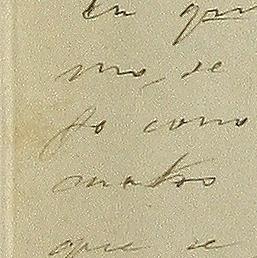 en qu
mo, se
fo como
matos
que e